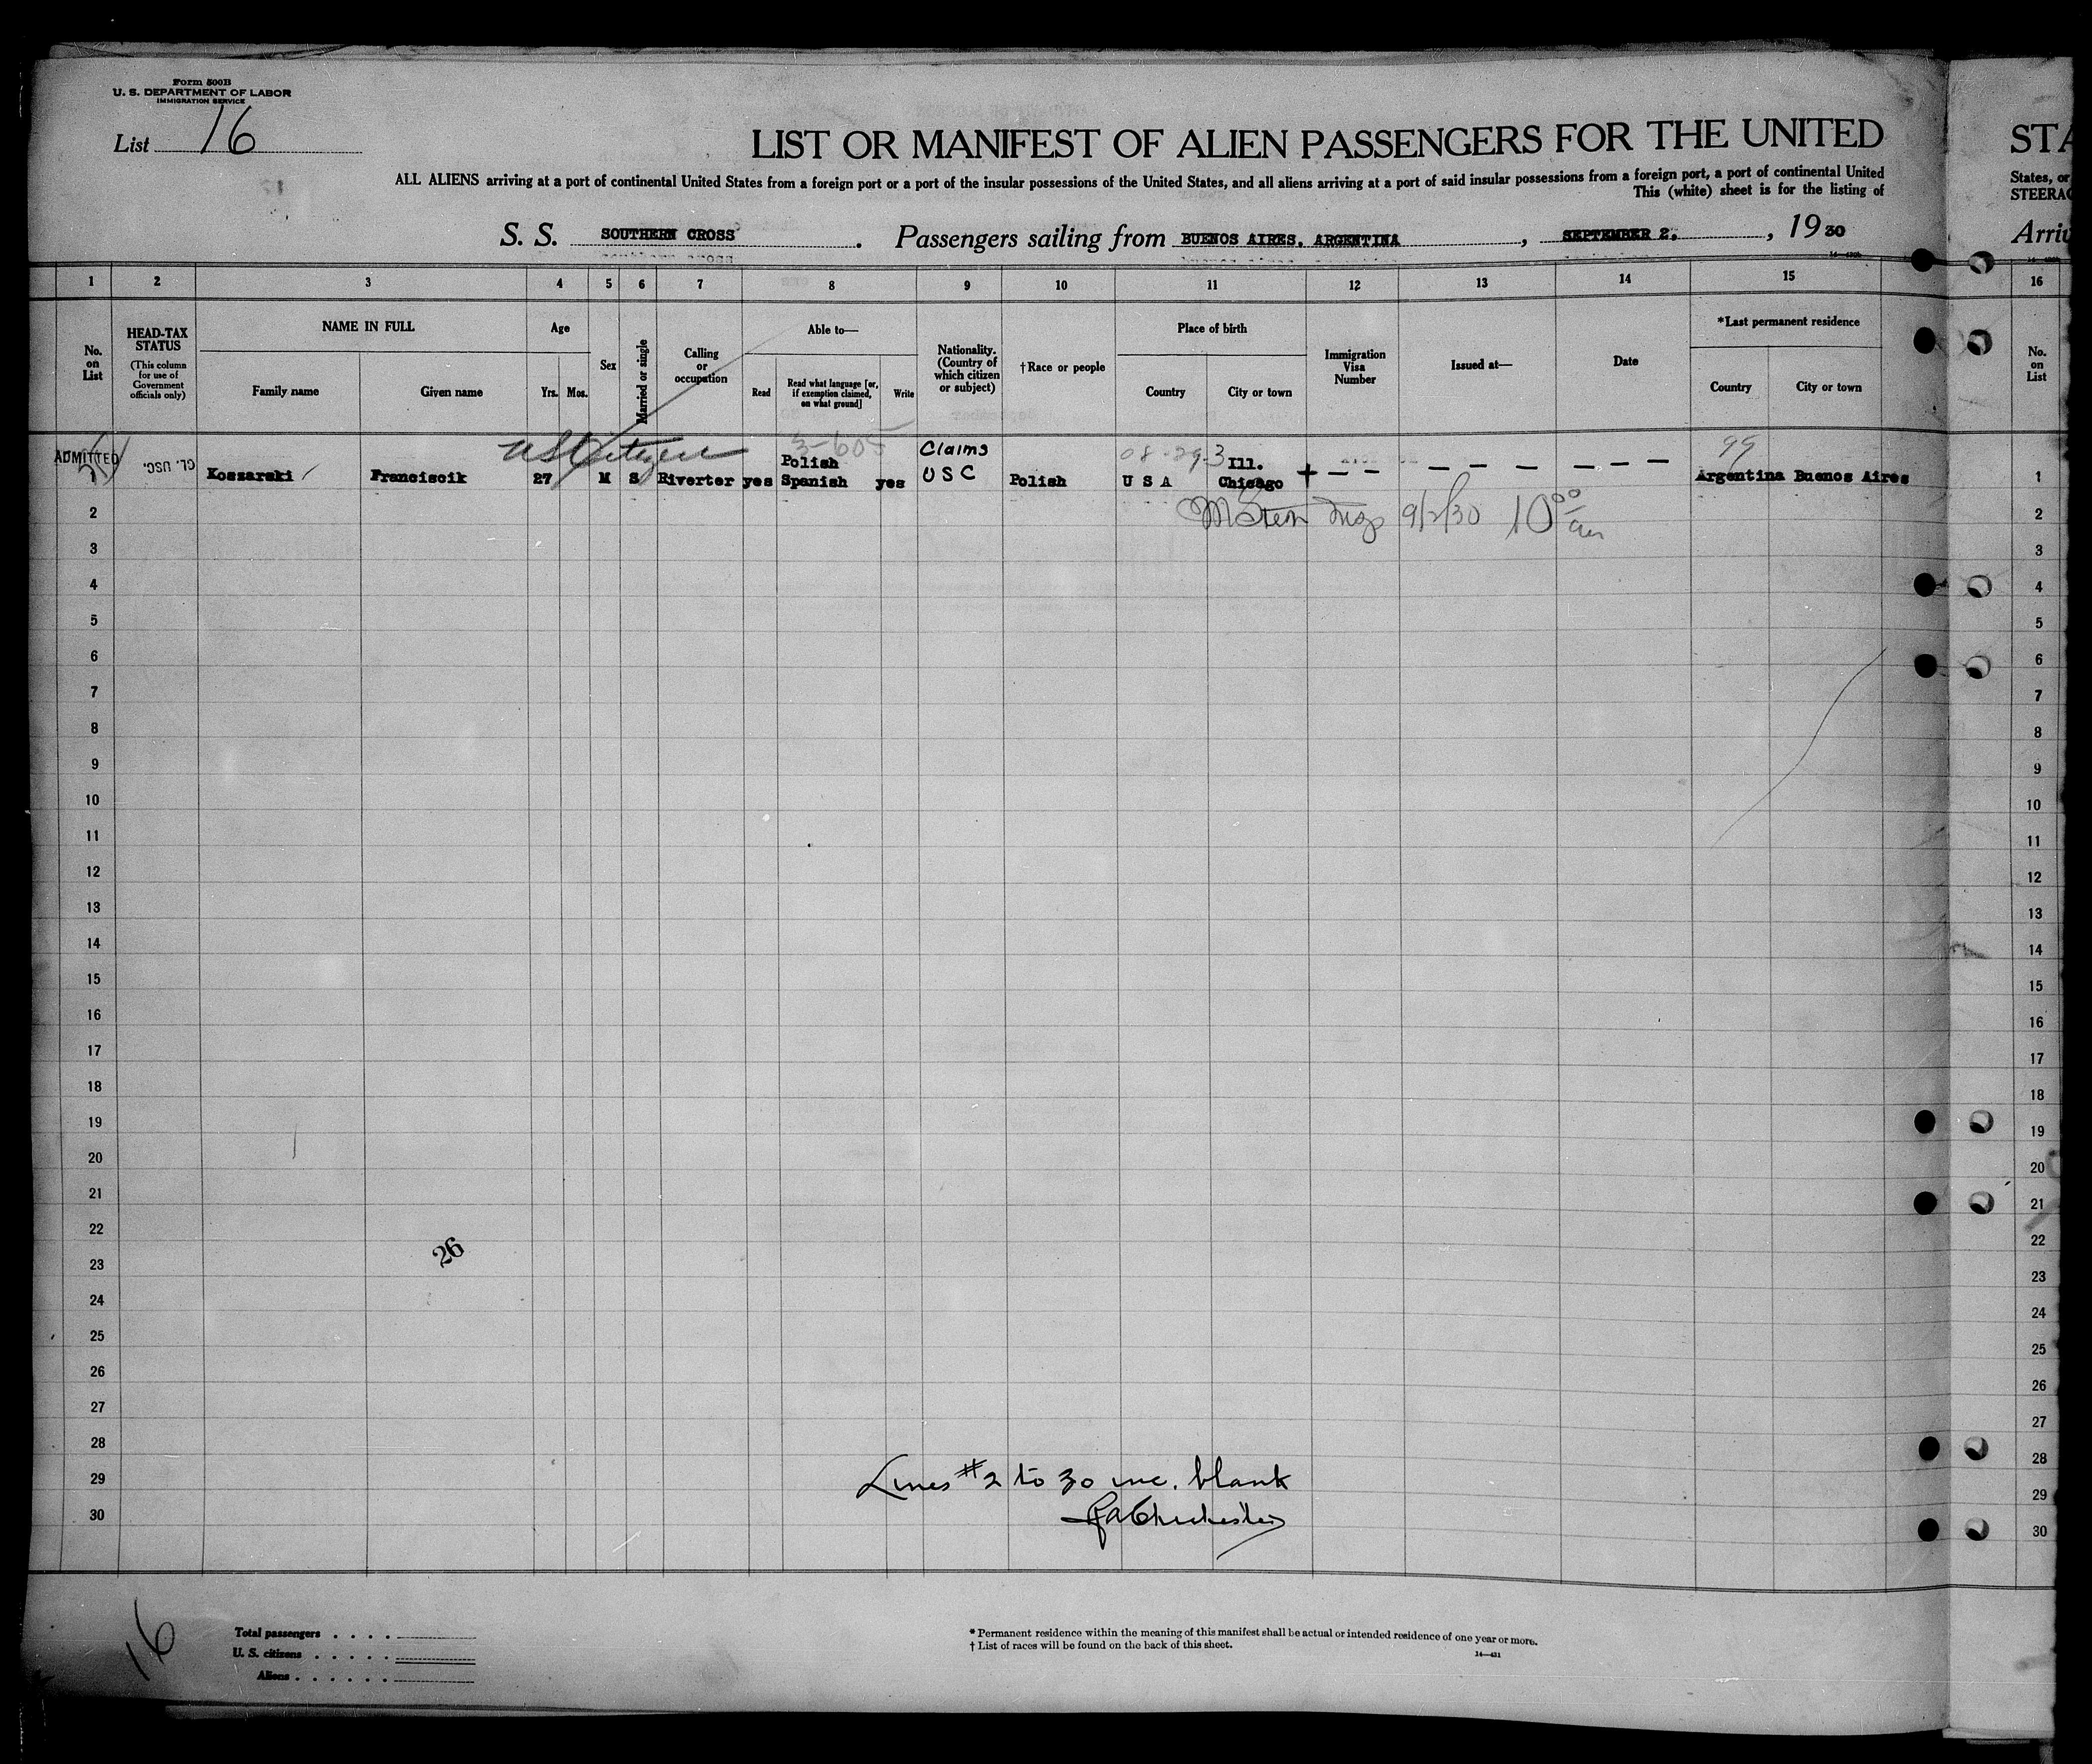 Form 500B
U. S. DEPARTMENT OF LABOR
IMMIGRATION SERVICE
List 16
LIST OR MANIFEST OF ALIEN PASSENGERS FOR THE UNITED
STA
ALL ALIENS arriving at a port of continental United States from a foreign port or a port of the insular possessions of the United States, and all aliens arriving at a port of said insular possessions from a foreign port, a port of continental United
States, or
This (white) sheet is for the listing of
STEERAG
S. S. SOUTHERN CROSS. Passengers sailing from BUENOS AIRES. ARGENTINA, SEPTEMBER 2., 1930
Arriv
1 2 3 4 5 6 7 8 9 10 11 12 13 14 15 16
No. on List
HEAD-TAX STATUS
(This column for use of Government officials only)
NAME IN FULL
Family name Given name
Age
Yrs. Mos.
Sex
Married or single
Calling or occupation
Able to—
Read
Read what language [or, if exemption claimed, on what ground]
Write
Nationality. (Country of which citizen or subject)
†Race or people
Place of birth
Country City or town
Immigration Visa Number
Issued at—
Date
*Last permanent residence
Country City or town
No. on List
US Citizen 3-605 Claims 08-29-3 99
ADMITTED CL. USC. Koszarski Franciscik 27 M S Riverter yes Polish Spanish yes USC Polish U S A Ill. Chicago + — — — — — — — — — Argentina Buenos Aires 1
2 9/2/30 10 00 am 2
3 3
4 4
5 5
6 6
7 7
8 8
9 9
10 10
11 11
12 12
13 13
14 14
15 15
16 16
17 17
18 18
19 19
20 20
21 21
22 22
26
23 23
24 24
25 25
26 26
27 27
28 28
29 Lines #2 to 30 inc. blank 29
30 30
16
Total passengers
U. S. citizens
Aliens
* Permanent residence within the meaning of this manifest shall be actual or intended residence of one year or more.
† List of races will be found on the back of this sheet.
14—431